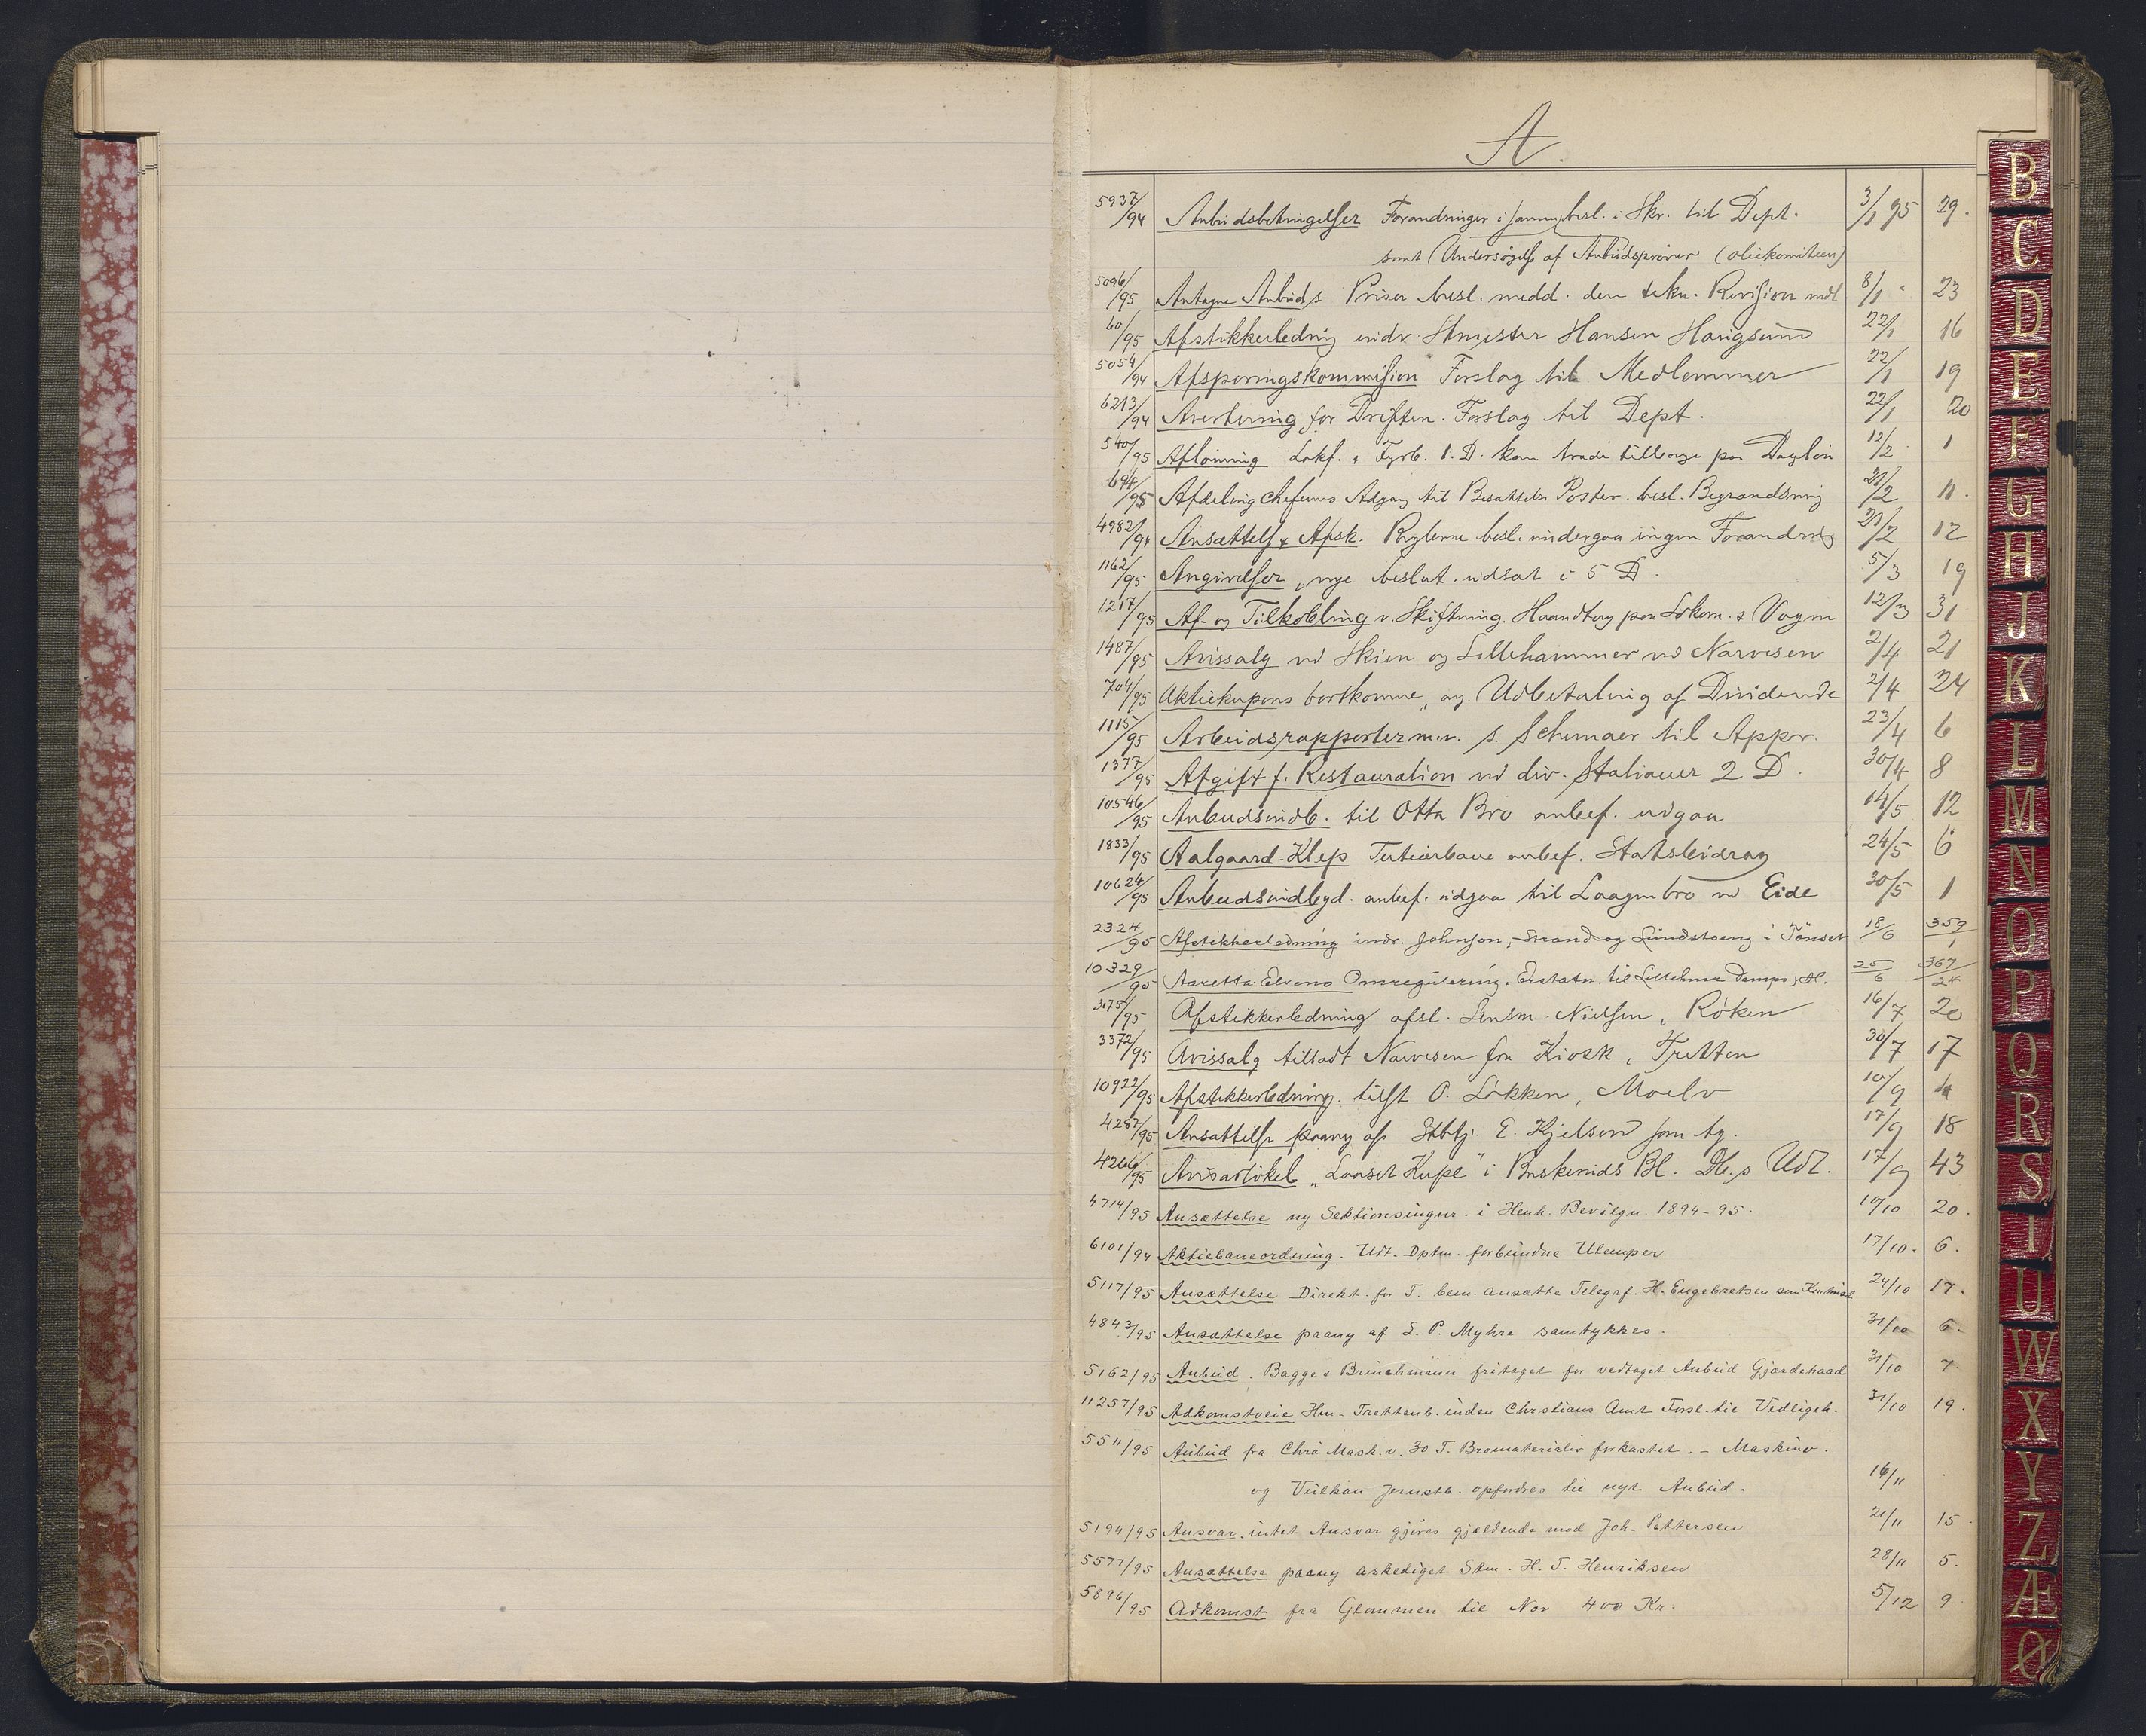 A.
5937/94 Anbudsbetingelser Forandringer i besl. i Skr. til Dept. 3/1 95 29.
samt Undersøgelse af Anbudsprøver (oliekomiteen)
5096/95 Antagne Anbuds Priser besl. medd. den tekn. Revision 8/1 23
60/95 Afstikkerledning indv. Stmester Hansen Haugsund 22/1 16
5054/94 Afsporingskommission Forslag til Medlemmer 22/1 19
6213/94 Avertering for Driften. Forslag til Dept. 22/1 20
540/95 Aflønning Lokf. & Fyrb. 1. D. kan træde tilbage paa Dagløn 12/2 1
694/95 Afdelingchefernes Adgang til Besættelse Poster. besl. Begrændsning 21/2 11.
4982/94 Ansættelse & Afsk. Reglerne besl. undergaa ingen Forandring 21/2 12
1162/95 Angivelser, nye beslut. udsat i 5 D. 5/3 19
1217/95 Af- og Tilkobling v. Skiftning. Haandtag paa Lokom. & Vogne 12/3 31
1487/95 Avissalg ved Skien og Lillehammer ved Narvesen 2/4 21
704/95 Aktiekupons bortkomne, ang. Udbetaling af Dividende 2/4 24
1115/95 Arbeidsrapporter m.v. s. Schemaer til Appr. 23/4 6
1377/95 Afgift f. Restauration ved div. Stationer 2 D. 30/4 8
10546/95 Anbudsindb. til Otta Bro anbef. udgaa 14/5 12
1833/95 Aalgaard-Klep Tertiærbane anbef. Statsbidrag 24/5 6
10624/95 Anbudsindbyd. anbef. udgaa til Laagenbro ved Eide 30/5 1
2324/95 Afstikkerledning indv. Johnson, Strand og Lundstoeng i Tönset 18/6 359/1
10329/95 Aaretta Elvens Omregulering. Erstatn. til Lillehmr Damps 25/6 367/24
3175/95 Afstikkerledning afsl. Lensm. Nielsen, Røken 16/7 20
3372/95 Avissalg tilladt Narvesen fra Kiosk, Tretten 30/7 17
10922/95 Afstikkerledning tilst O. Løkken, Moelv 10/9 4
4287/95 Ansættelse paany af Stbtj. E. Kjelsen som tg. 17/9 18
4266/95 Avisartikel "Laaset Kupe" i Buskeruds Bl. Udt. 17/9 43
4714/95 Ansættelse ny Sektionsingeniør. i Henh. Bevilgn. 1894-95. 10/10 20.
6101/94 Aktiebaneordning. Udt. Dptm. forbundne Ulemper 17/10. 6.
5117/95 Ansættelse Direkt. for T. bem. ansætte Telegrf. H. Engebretsen som Kontorist 24/10 17.
4843/95 Ansættelse paany af L. P. Myhre samtykkes. 31/10 6.
5162/95 Anbud. Bagge & Brinchmann fritaget for vedtaget Anbud Gjærdetraad 31/10 7.
11257/95 Adkomstveie Hm-Trettenb. inden Christians Amt Forsl. til Vedligeh. 31/10 19.
5511/95 Anbud fra Chra Mask. v. 30 T. Bromaterialer forkastet. - Maskinv.
og Vulkan Jernstb. opfordres til nyt Anbud. 16/11
5194/95 Ansvar. intet Ansvar gjøres gjældende mod Joh. Pettersen 21/11 15
5577/95 Ansættelse paany afskediget Stm. H. T. Henriksen 28/11 5.
5896/95 Adkomst fra Glommen til Nor 400 Kr. 5/12 9
B
C
D
E
F
G
H
J
K
L
M
N
O
P
Q
R
S
T
U
W
X
Y
Z
Æ
Ø